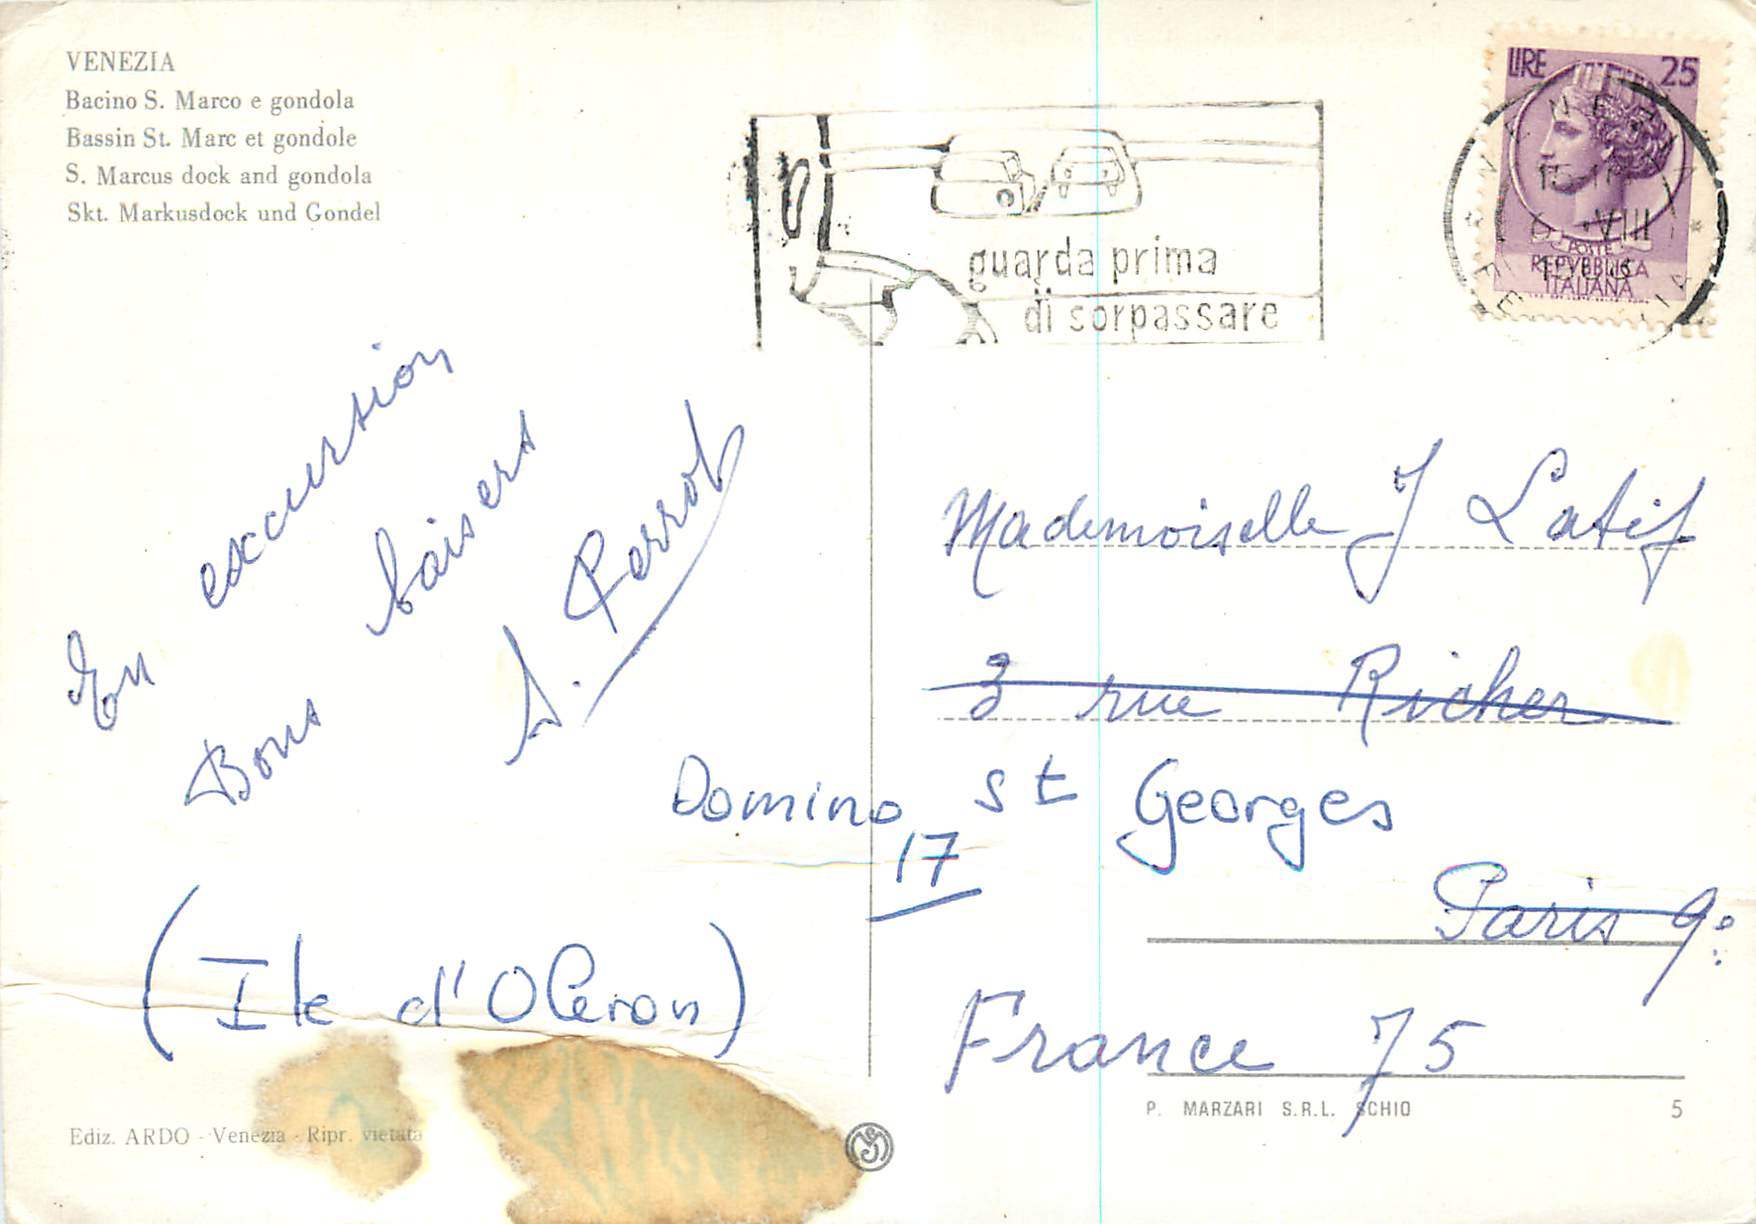 VENEZIA
Bacino S. Marco e gondola
Bassin St. Marc et gondole
S. Marcus dock and gondola
Skt. Markusdock und Gondel
guarda prima
di sorpassare
LIRE 25
POSTE
REPVBBLICA
ITALIANA
En excursion
Bons baisers
Perrot
Mademoiselle J Latif
3 rue Richer
Domino St Georges
17
Paris 9e
(Ile d'Oleron)
France 75
Ediz. ARDO - Venezia - Ripr. vietata
P. MARZARI S.R.L. SCHIO 5